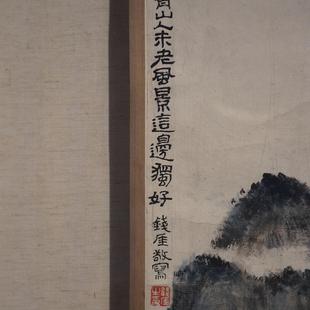 青山人未老風景這邊獨好
錢厓敬寫